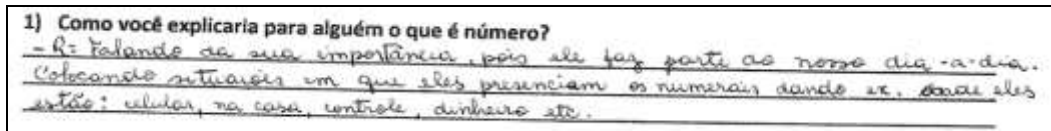 1) Como você explicaria para alguém o que é número?
- R= Falando da sua importância, pois ele faz parte do nosso dia-a-dia.
Colocando situações em que eles presenciam os numerais dando ex. onde eles
estão: celular, na casa, controle, dinheiro etc.